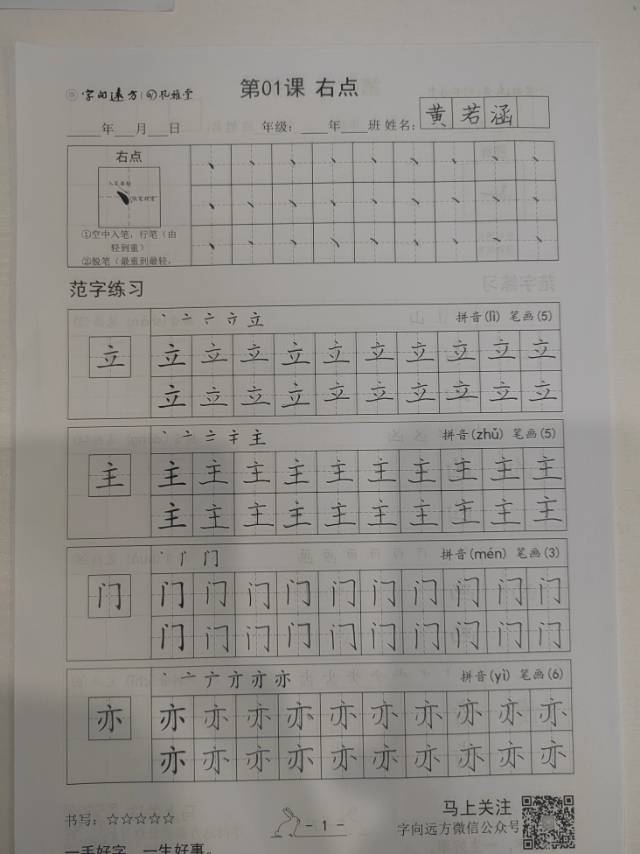 字向远方 孔雅堂
第01课 右点
年 月 日 年级： 年 班 姓名： 黄若涵
右点
①空中入笔，行笔（由
轻到重）
②脱笔（最重到最轻，
范字练习
丶 亠 亣 立 拼音(lì) 笔画(5)
立 立 立 立 立 立 立 立 立 立 立
立 立 立 立 立 立 立 立 立 立
主 拼音(zhǔ) 笔画(5)
主 主 主 主 主 主 主 主 主 主 主
主 主 主 主 主 主 主 主 主 主
门 拼音(mén) 笔画(3)
门 门 门 门 门 门 门 门 门 门 门
门 门 门 门 门 门 门 门 门 门
亦 拼音(yì) 笔画(6)
亦 亦 亦 亦 亦 亦 亦 亦 亦 亦 亦
亦 亦 亦 亦 亦 亦 亦 亦 亦 亦
书写：☆☆☆☆☆
- 1 -
马上关注
字向远方微信公众号
一手好字，一生好事。